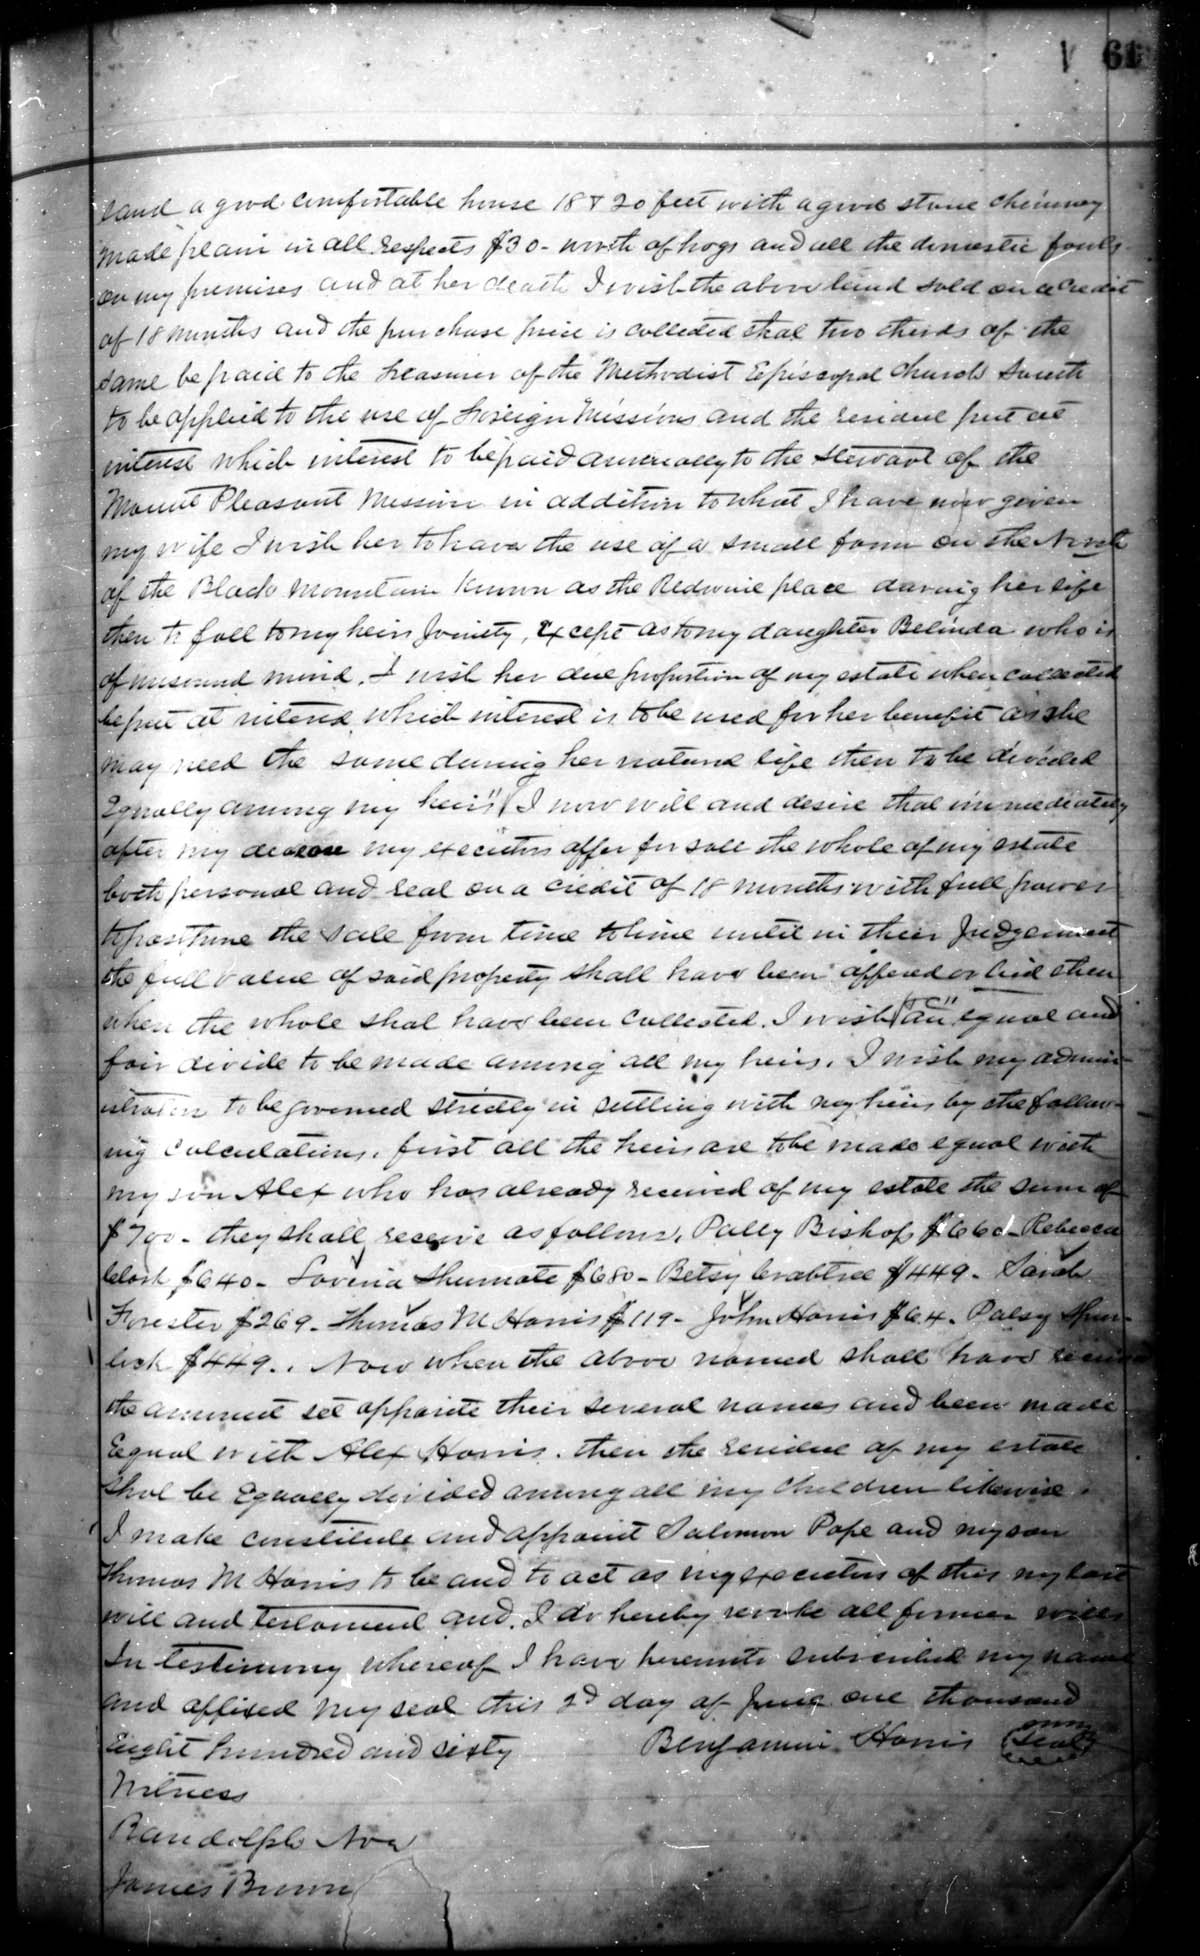 61
land a good comfortable house 18 & 20 feet with a good stone chimney
made plain in all respects $30 - worth of hogs and all the domestic fowls
on my premises and at her death I wish the above lend sold on a credit
of 18 months and the purchase price is collected shal two thirds of the
same be paid to the treasurer of the Methodist Episcopal Church South
to be applied to the use of foreign Missions and the residue put at
interest which interest to be paid annually to the Steward of the
Mount Pleasant Mission in addition to what I have now given
my wife I wish her to have the use of a small farm on the North
of the Black Mountain Known as the Redwine place during her life
then to fall to my heirs Joinety, Except as to my daughter Belinda who is
of unsound mind. I wish her due proportion of my estate when collected
be put at interest which interest is to be used for her benefit as she
may need the same during her natural life then to be divided
Equally among my heirs" ( I now will and desire that immediately
after my decease my executors offer for sale the whole of my estate
both personal and real on a credit of 18 months with full power
to postpone the sale from time to time until in their Judgement
the full value of said property shall have been offered or bid then
when the whole shal have been collected. I wish an equal and
fair divide to be made among all my heirs. I wish my admin-
istrators to be governed strictly in settling with my heirs by the follow-
ing calculations. first all the heirs are to be made equal with
my son Alex who has already received of my estate the sum of
$700 - they shall receive as follows. Polly Bishop $660 - Rebecca
Clark $640 - Lovina Shumate $680 - Betsy Crabtree $449 - Sarah
Forester $269 - Thomas M Harris $119 - John Harris $64. Patsy Spur-
lock $449. . Now when the above named shall have
the amount set opposite their several names and been made
Equal with Alex Harris. then the residue of my estate
shal be Equally divided among all my children likewise.
I make constitute and appoint Solomon Pope and my son
Thomas M Harris to be and to act as my executors of this my last
will and testament and. I do hereby revoke all former wills
In testimony whereof I have hereunto subscribed my name
and affixed my seal this 2d day of June one thousand
Eight hundred and sixty Benjamin Harris (Seal)
Witness
Randolph Noe
James Brown